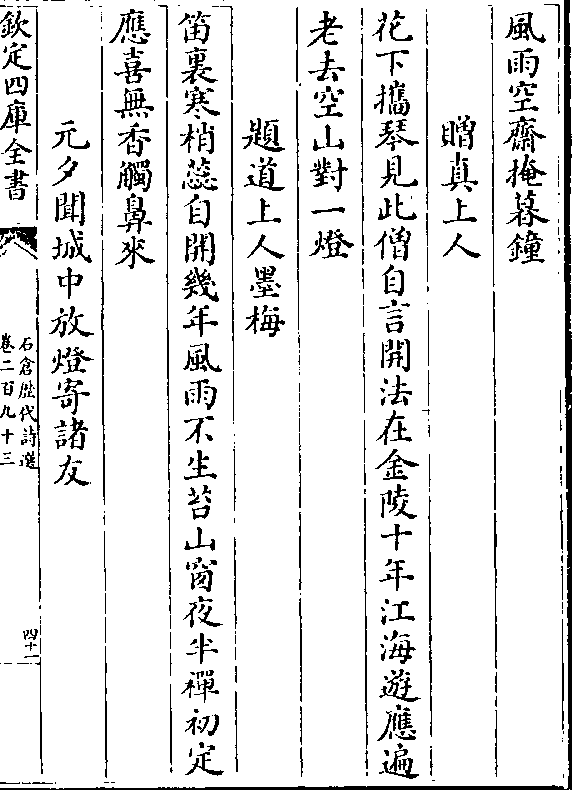 風雨空齋掩暮鐘
贈真上人
花下攜琴見此僧自言開法在金陵十年江海遊應遍
老去空山對一燈
題道上人墨梅
笛裏寒梢蕊自開幾年風雨不生苔山窗夜半禪初定
應喜無香觸鼻來
元夕聞城中放燈寄諸友
欽定四庫全書
石倉歴代詩選
卷二百九十三
四十一